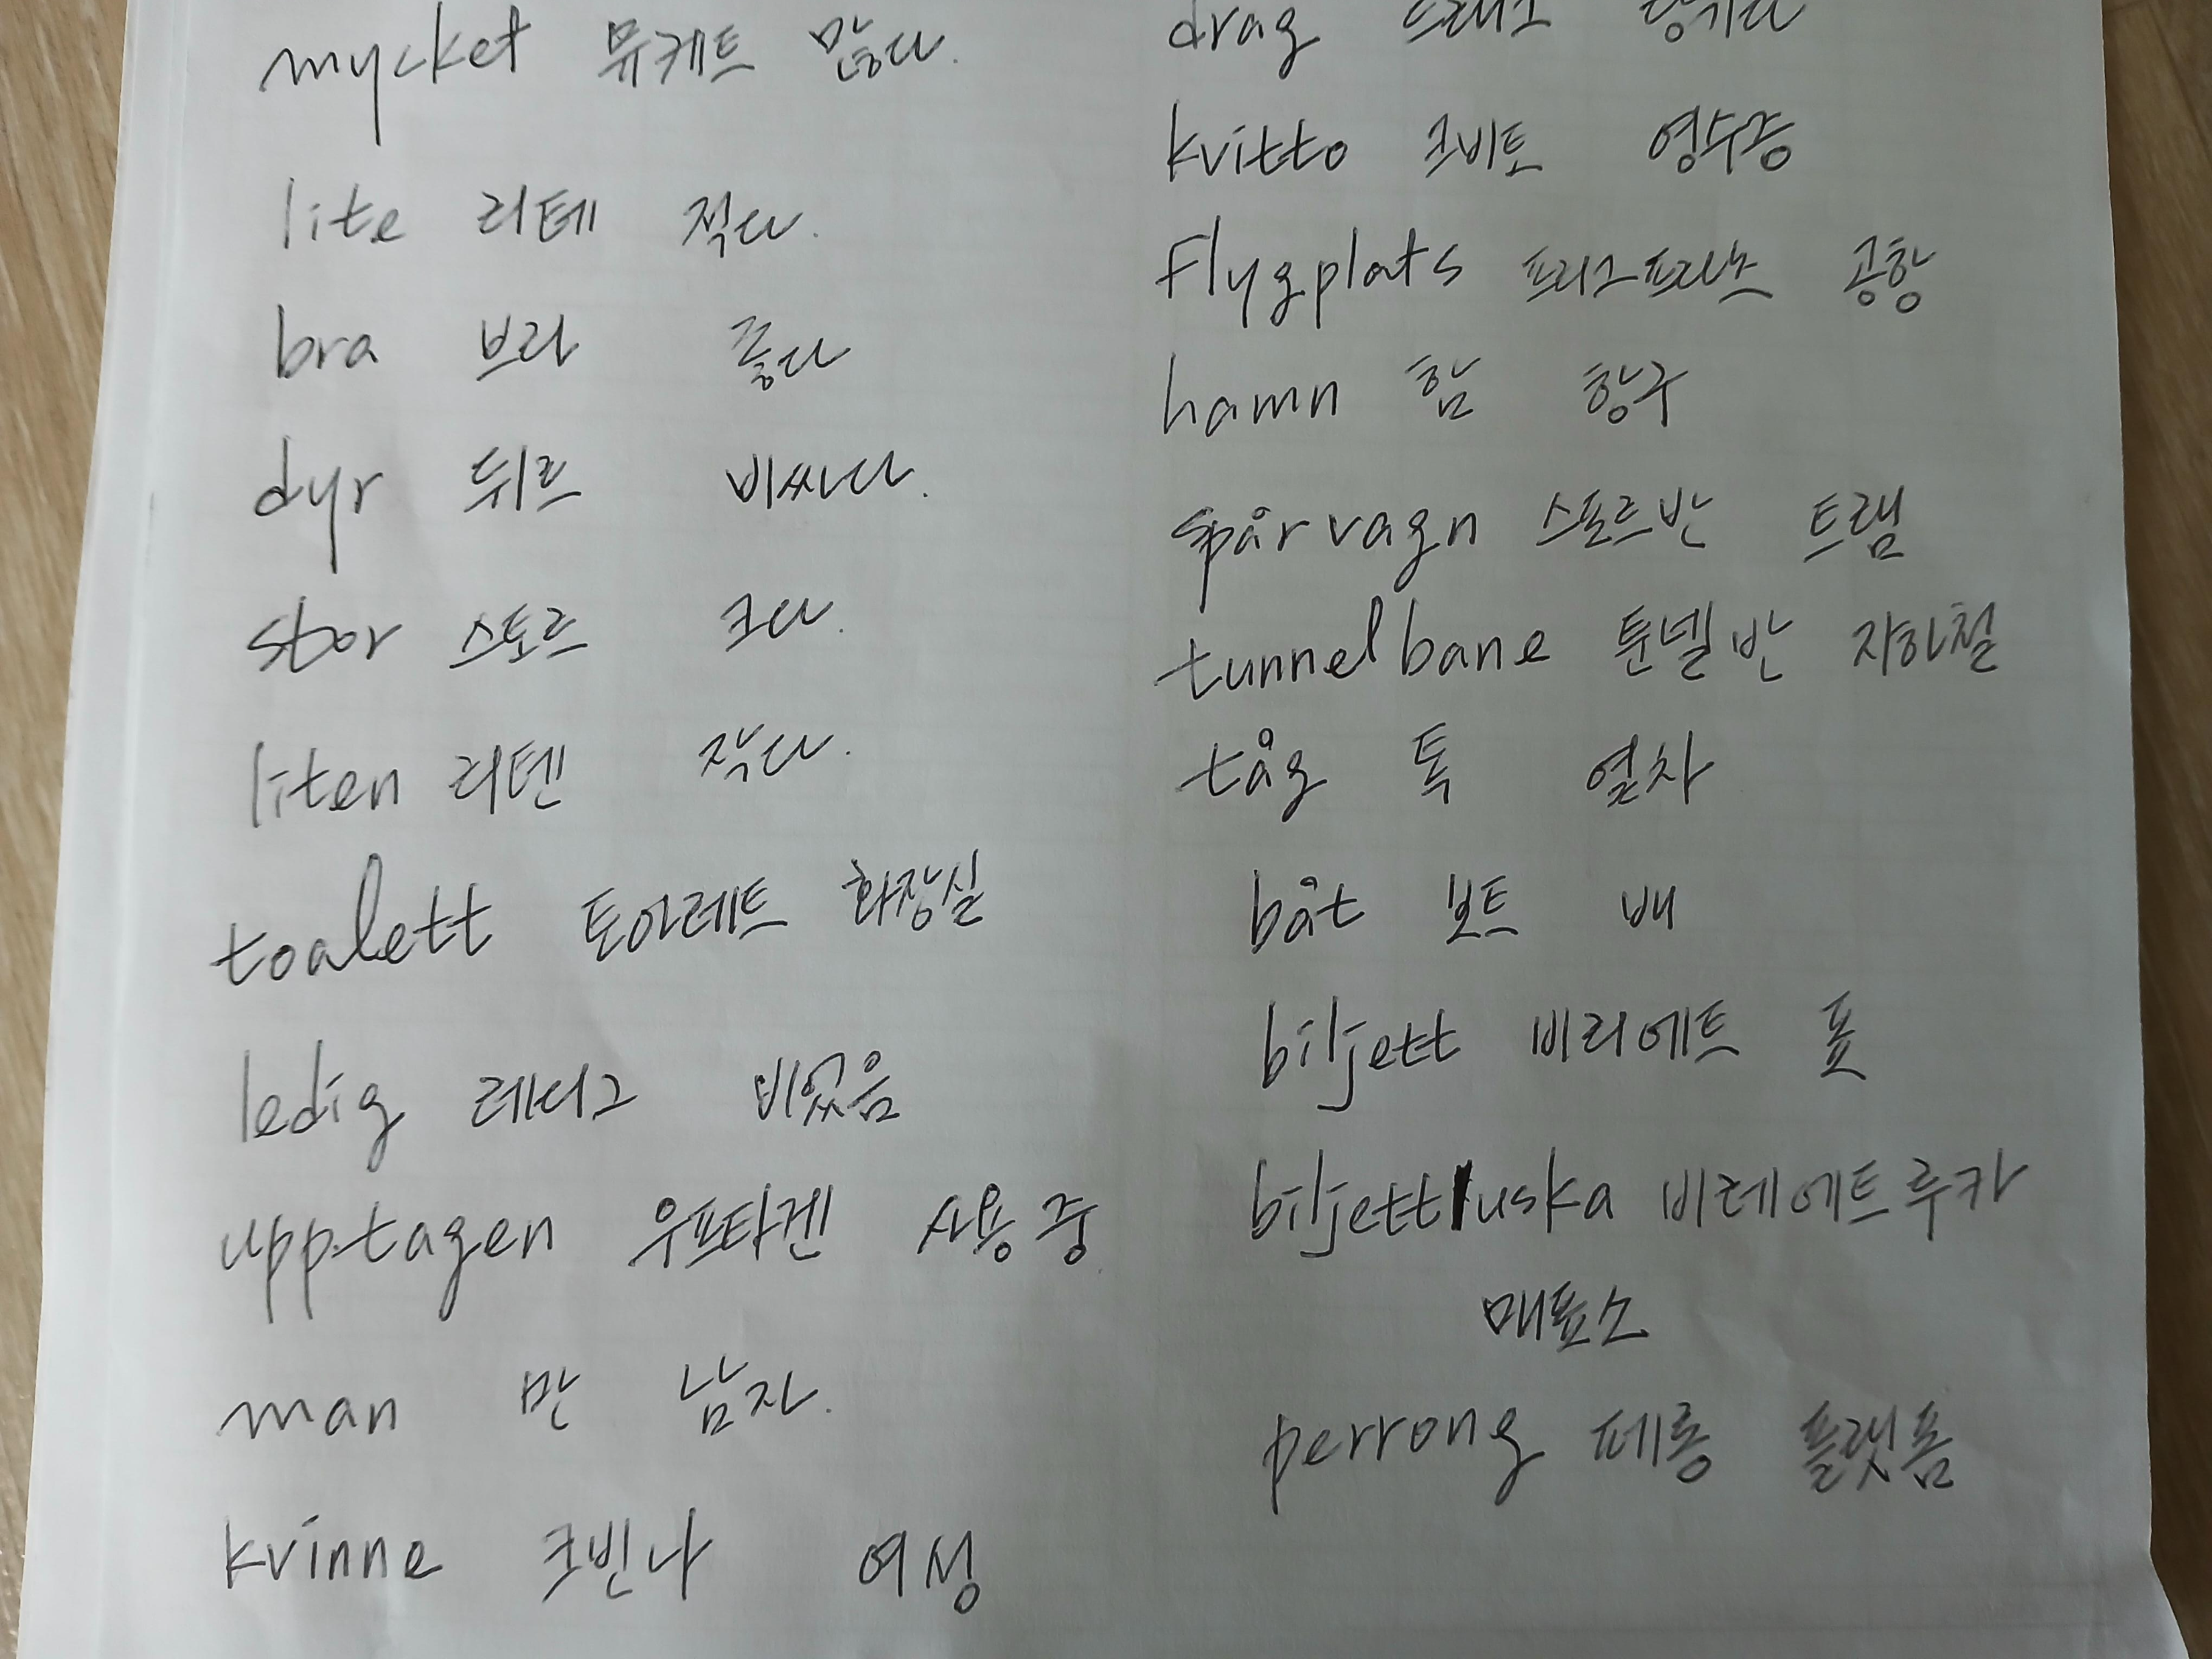 mycket 뮤케트 많다.
lite 리테 적다.
bra 브라 좋다
dyr 뒤르 비싸다.
stor 스토르 크다.
liten 리텐 작다.
toalett 토아레트 화장실
ledig 레디그 비었음
upptagen 우프타겐 사용중
man 만 남자.
kvinne 크빈나 여성
drag 드래그 당기다
kvitto 크비토 영수증
Flygplats 프리그프라츠 공항
hamn 함 항구
spårvagn 스포르반 트램
tunnelbane 툰넬반 지하철
tåg 톡 열차
båt 보트 배
biljett 비리에트 표
biljettluska 비레에트루카
매표소
perrong 페롱 플랫폼